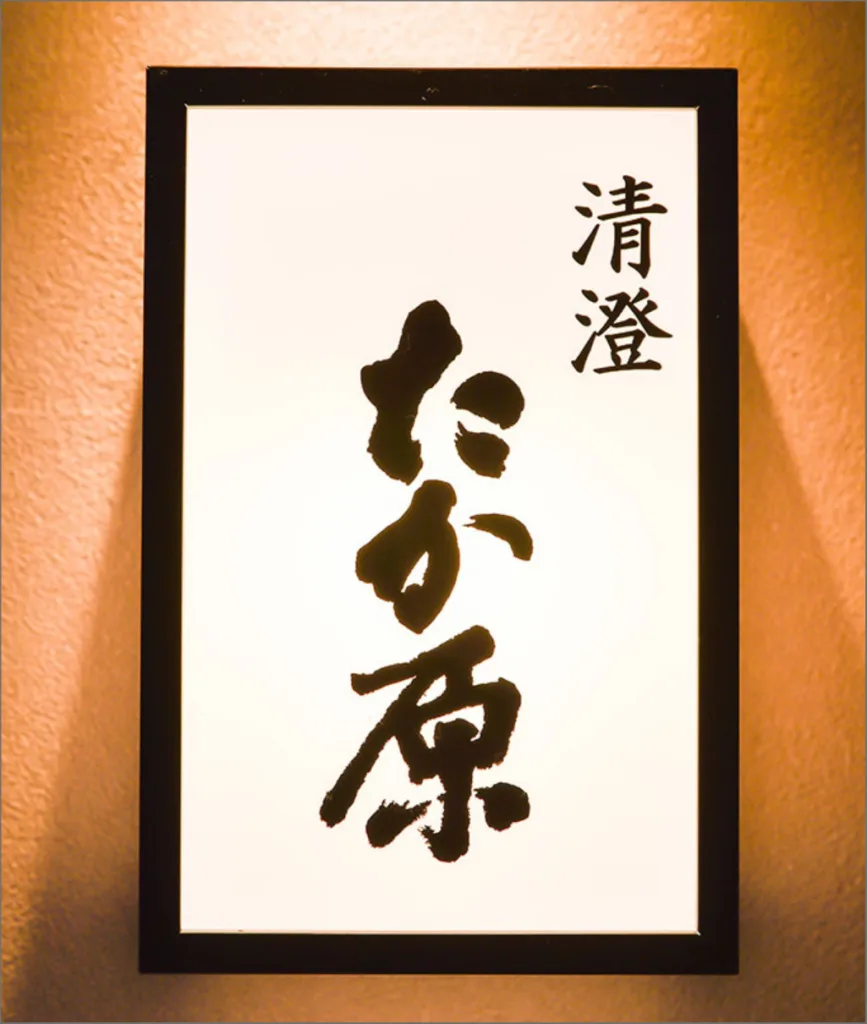 清澄
たか原